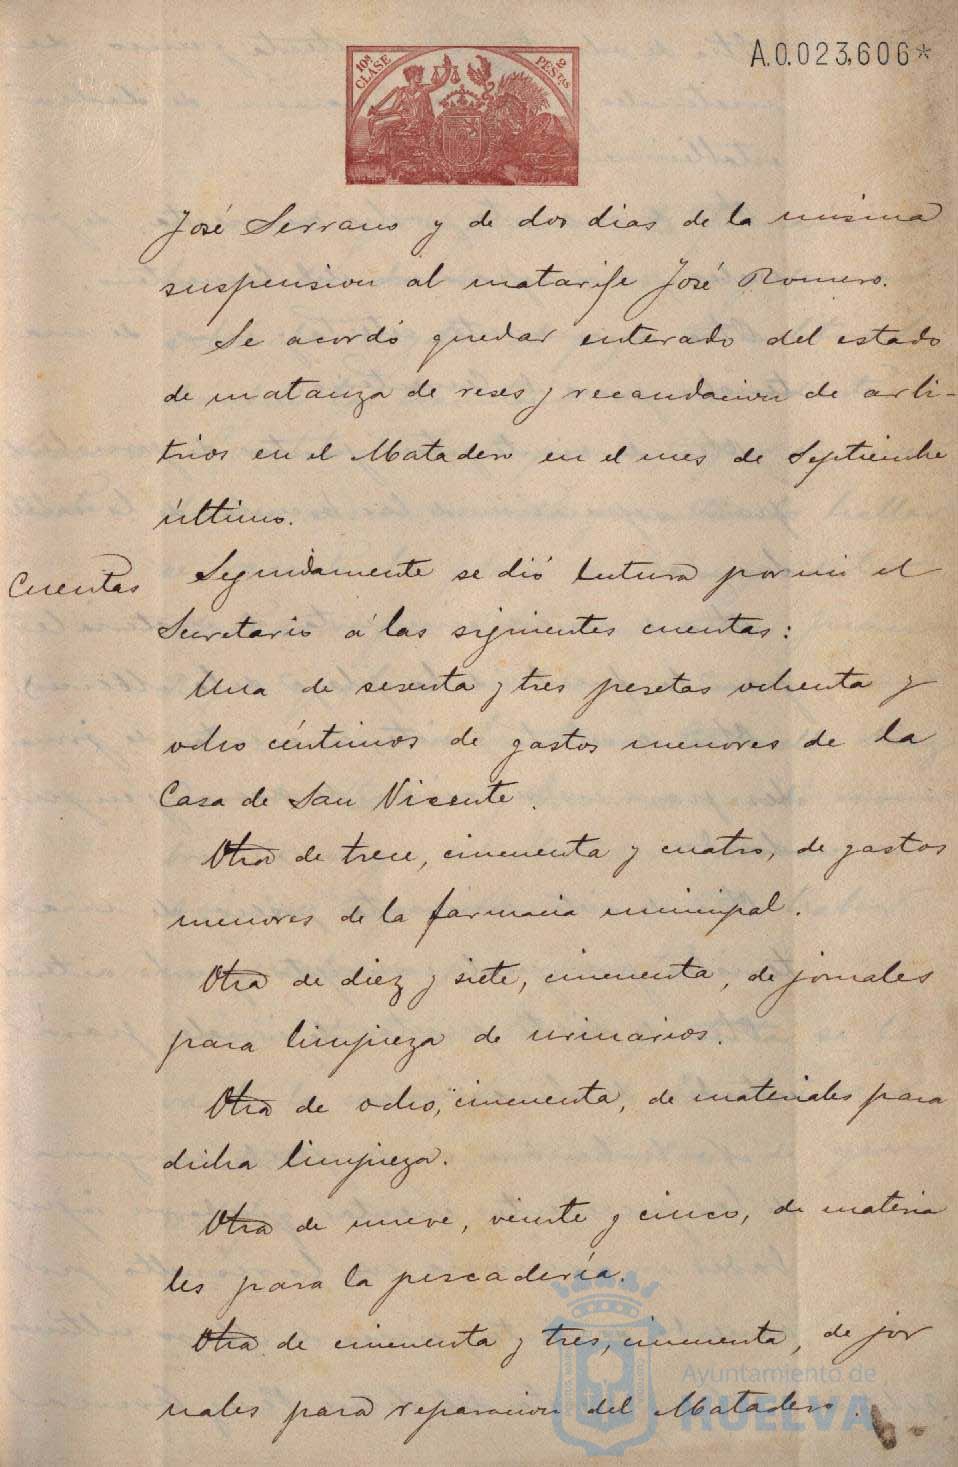 A.0.023,606*
10ª CLASE
2 PESTAS
José Serrano y de dos dias de la misma
suspension al matarife José Romero.
Se acordó quedar enterado del estado
de matanza de reses y recaudacion de arbi-
trios en el Matadero en el mes de Septiembre
último.
Cuentas
Seguidamente se dió lectura por mi el
Secretario á las siguientes cuentas:
Una de sesenta y tres pesetas ochenta y
ocho céntimos de gastos menores de la
Casa de San Vicente.
Otra de trece, cincuenta y cuatro, de gastos
menores de la farmacia municipal.
Otra de diez y siete, cincuenta, de jornales
para limpieza de urinarios.
Otra de ocho, cincuenta, de materiales para
dicha limpieza.
Otra de nueve, veinte y cinco, de materia
les para la pescadería.
Otra de cincuenta y tres, cincuenta, de jor
nales para reparacion del Matadero.
Ayuntamiento de
HUELVA